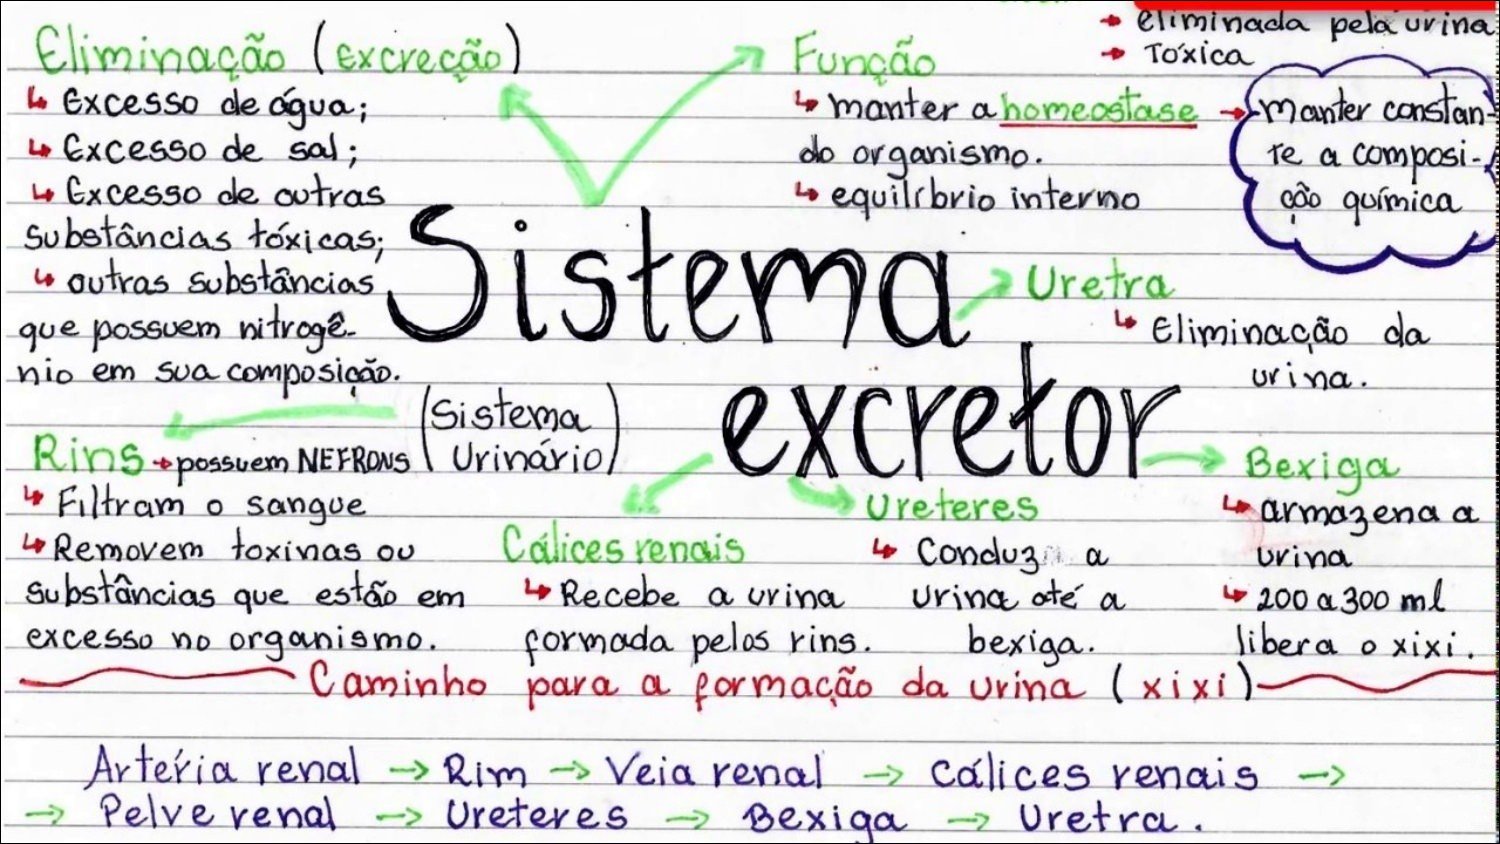 eliminada pela urina
Tóxica
Eliminação (excreção)
Excesso de água;
Excesso de sal;
Excesso de outras
substâncias tóxicas;
outras substâncias
que possuem nitrogê-
nio em sua composição.
Função
manter a homeostase
do organismo.
equilíbrio interno
manter constan-
te a composi-
ção química
Sistema
excretor
(Sistema
Urinário)
Uretra
Eliminação da
urina.
Rins → possuem NEFRONS
Filtram o sangue
Removem toxinas ou
substâncias que estão em
excesso no organismo.
Cálices renais
Recebe a urina
formada pelos rins.
Ureteres
Conduz a
urina até a
bexiga.
Bexiga
armazena a
urina
200 a 300 ml
libera o xixi.
Caminho para a formação da urina (xixi)
Artéria renal → Rim → Veia renal → Cálices renais →
→ Pelve renal → Ureteres → Bexiga → Uretra.